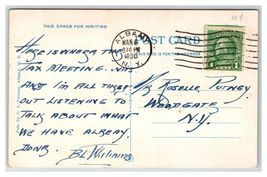 10¢
THIS SPACE FOR WRITING
ALBANY
MAR 6
830 PM
1930
N.Y.
POST CARD
HERE IS WHERE THE
TAX MEETING WAS
AND I'M ALL TIRED
OUT LISTENING TO
TALK ABOUT WHAT
WE HAVE ALREADY
DONE.
BL Williams
ROSELLE PUTNEY
WOODGATE
N.Y.